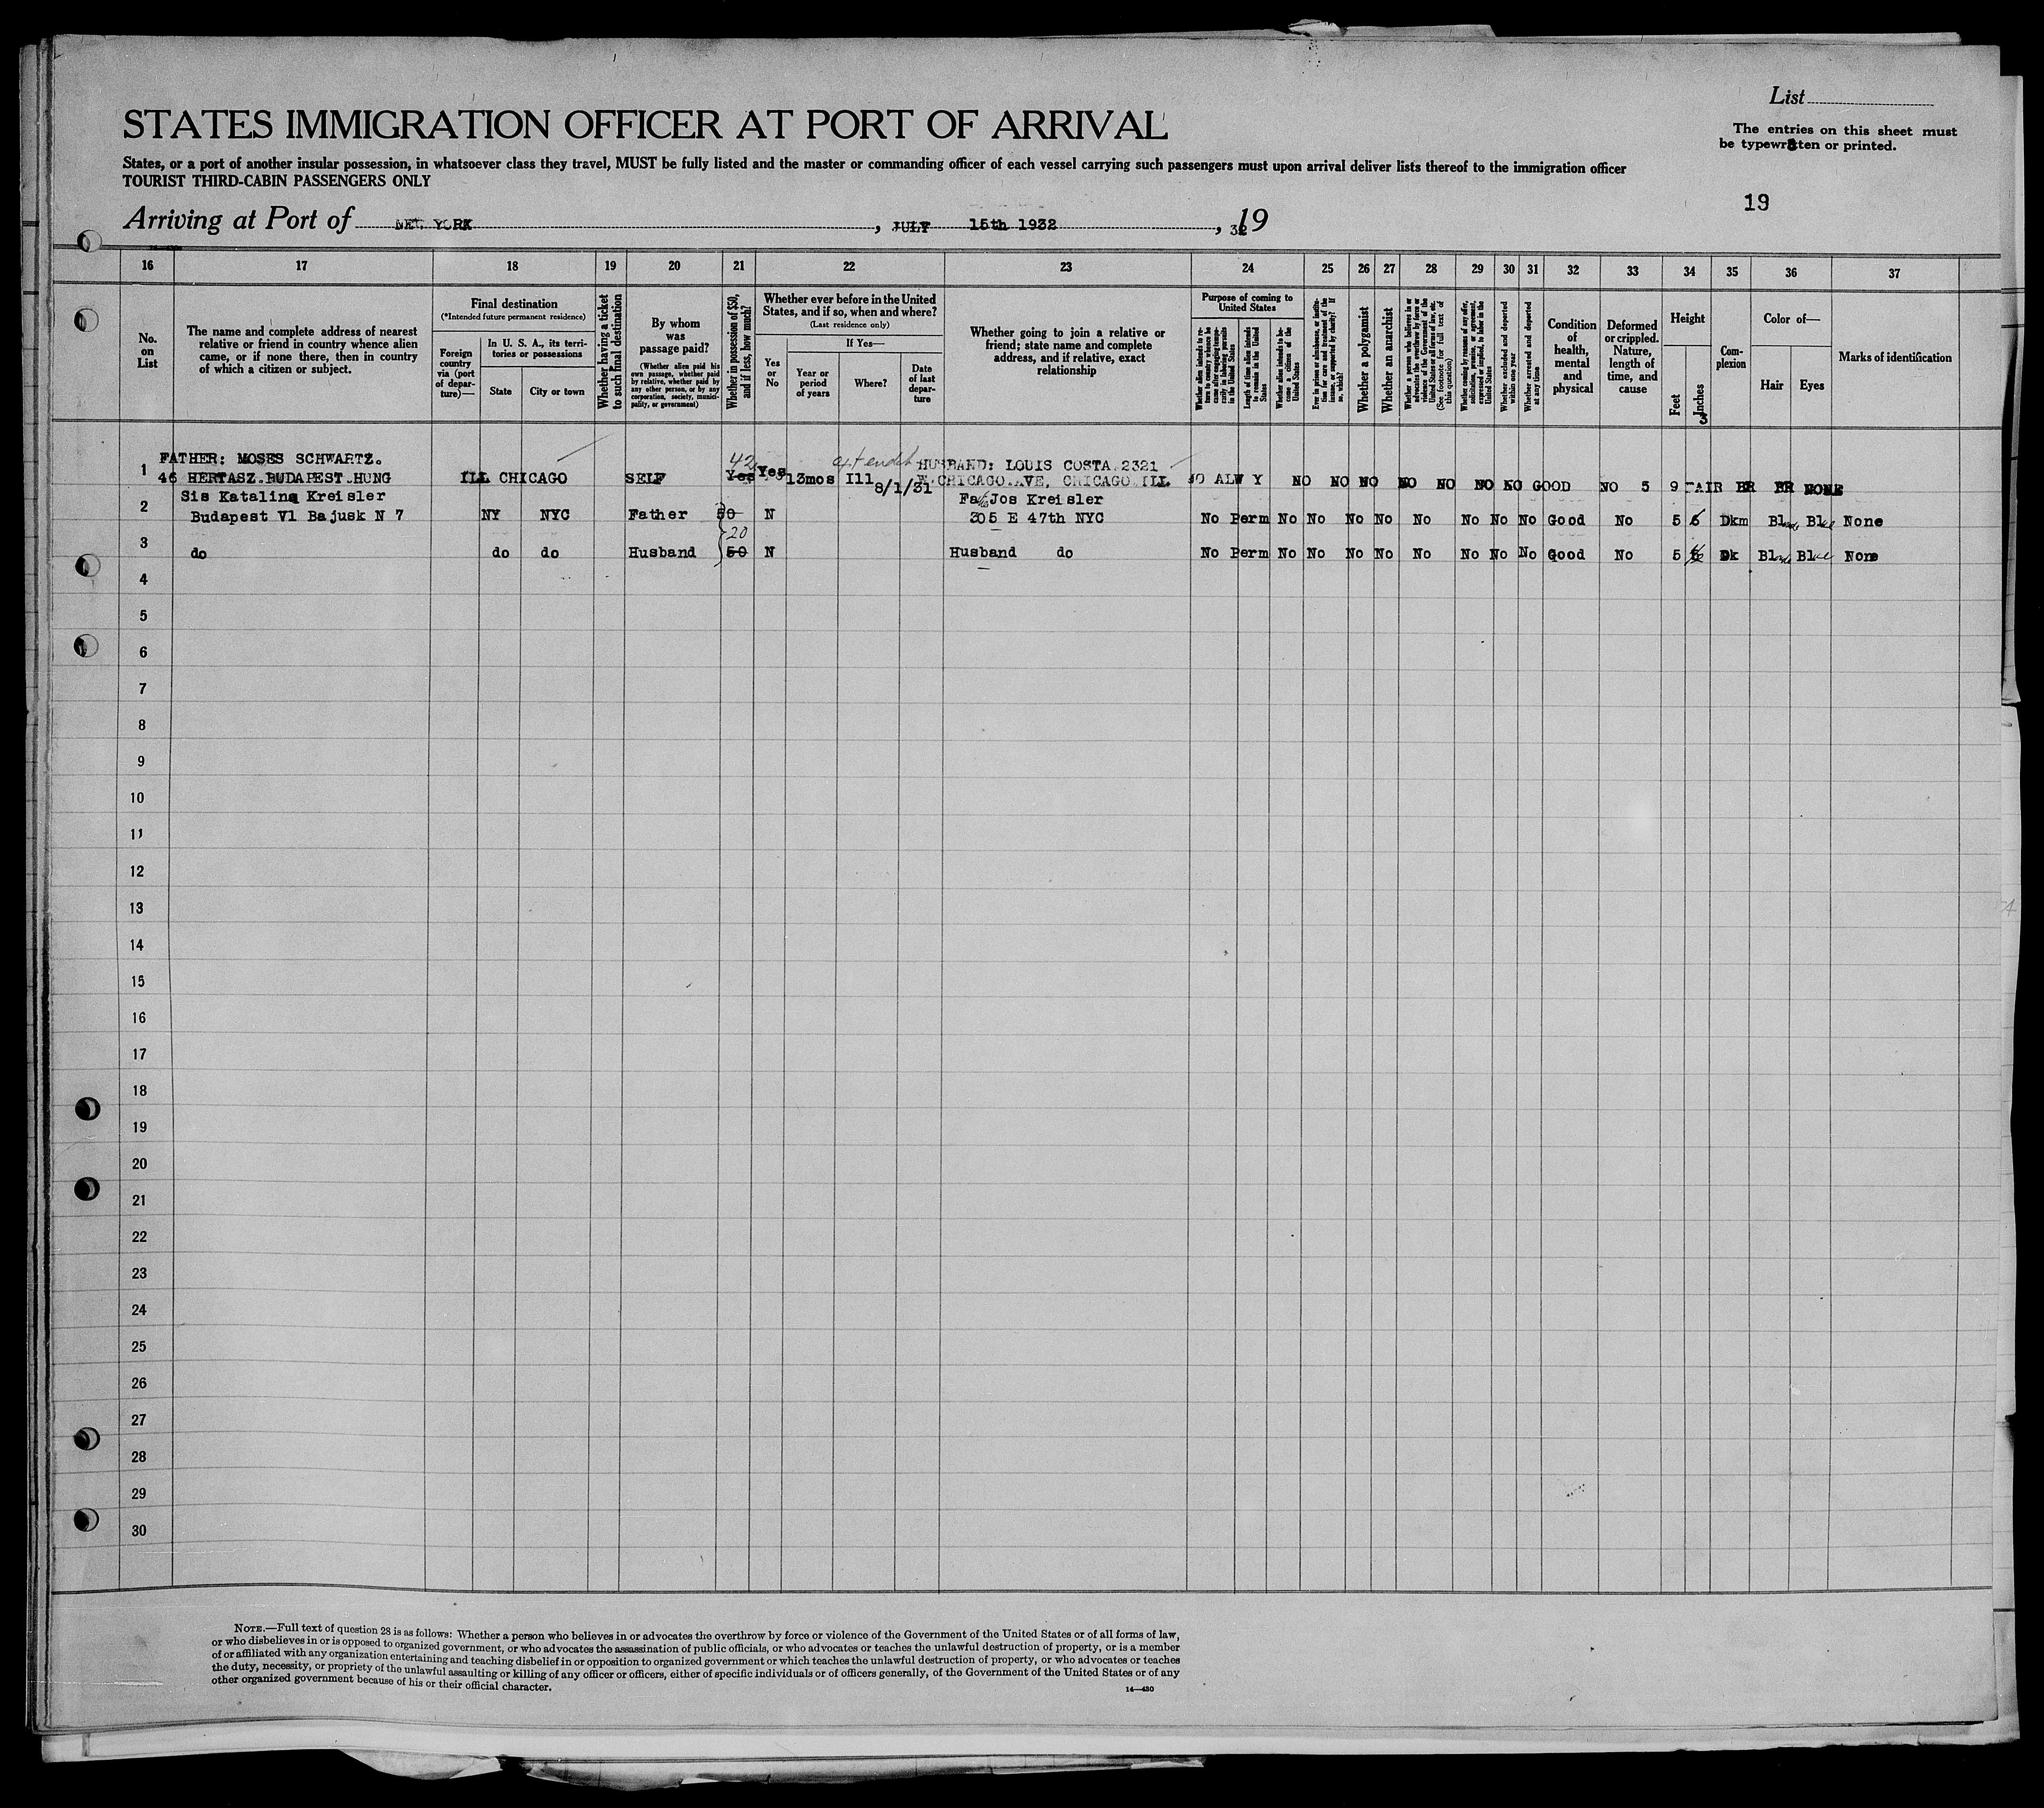 List
The entries on this sheet must
be typewritten or printed.
STATES IMMIGRATION OFFICER AT PORT OF ARRIVAL
States, or a port of another insular possession, in whatsoever class they travel, MUST be fully listed and the master or commanding officer of each vessel carrying such passengers must upon arrival deliver lists thereof to the immigration officer
TOURIST THIRD-CABIN PASSENGERS ONLY
19
Arriving at Port of NEW YORK, JULY 15th 1932, 19 32
16 17 18 19 20 21 22 23 24 25 26 27 28 29 30 31 32 33 34 35 36 37
No. on List
The name and complete address of nearest relative or friend in country whence alien came, or if none there, then in country of which a citizen or subject.
Final destination
(*Intended future permanent residence)
Foreign country via (port of departure)—
In U. S. A., its territories or possessions
State
City or town
Whether having a ticket to such final destination
By whom was passage paid?
(Whether alien paid his own passage, whether paid by relative, whether paid by any other person, or by any corporation, society, municipality, or government)
Whether in possession of $50, and if less, how much?
Whether ever before in the United States, and if so, when and where?
(Last residence only)
Yes or No
If Yes—
Year or period of years
Where?
Date of last departure
Whether going to join a relative or friend; state name and complete address, and if relative, exact relationship
Purpose of coming to United States
Length of time alien intends to remain in the United States
Whether alien intends to become a citizen of the United States
Whether a polygamist
Whether an anarchist
(See footnote for full text of this question)
Whether excluded and deported within one year
Whether arrested and deported at any time
Condition of health, mental and physical
Deformed or crippled. Nature, length of time, and cause
Height
Feet
Inches
Complexion
Color of—
Hair
Eyes
Marks of identification
FATHER: MOSES SCHWARTZ. 42 HUSBAND: LOUIS COSTA 2321
1 46 HERTASZ BUDAPEST HUNG ILL CHICAGO SELF Yes Yes 13mos Ill 8/1/31 CHICAGO AVE, CHICAGO ILL NO NO NO NO NO NO NO NO GOOD NO 5 9 FAIR BR BR NONE
Sis Katalina Kreisler Fa Jos Kreisler
2 Budapest V1 Bajusk N 7 NY NYC Father 50 N 305 E 47th NYC No Perm No No No No No No No No Good No 5 Dkm Blonde Blue None
20
3 do do do Husband 50 N Husband do No Perm No No No No No No No No Good No 5 Dk Blonde Blue None
4
5
6
7
8
9
10
11
12
13
14
15
16
17
18
19
20
21
22
23
24
25
26
27
28
29
30
NOTE.—Full text of question 28 is as follows: Whether a person who believes in or advocates the overthrow by force or violence of the Government of the United States or of all forms of law,
or who disbelieves in or is opposed to organized government, or who advocates the assassination of public officials, or who advocates or teaches the unlawful destruction of property, or is a member
of or affiliated with any organization entertaining and teaching disbelief in or opposition to organized government or which teaches the unlawful destruction of property, or who advocates or teaches
the duty, necessity, or propriety of the unlawful assaulting or killing of any officer or officers, either of specific individuals or of officers generally, of the Government of the United States or of any
other organized government because of his or their official character.
14—430